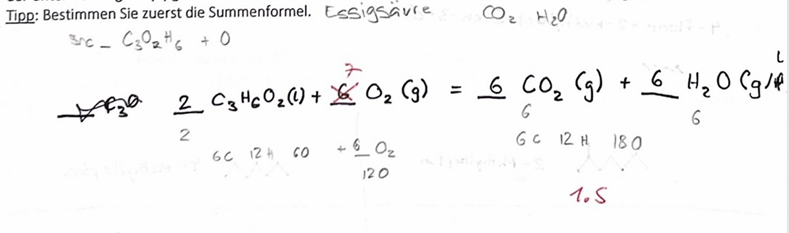 Tipp: Bestimmen Sie zuerst die Summenformel. Essigsäure CO₂ H₂O
C₃O₂H₆ + O
2 C₃H₆O₂(l) + 6 7 O₂ (g) = 6 CO₂ (g) + 6 H₂O (g/l
2 6 6
6C 12H 6O + 6 O₂ 6C 12H 18O
12O
1.5